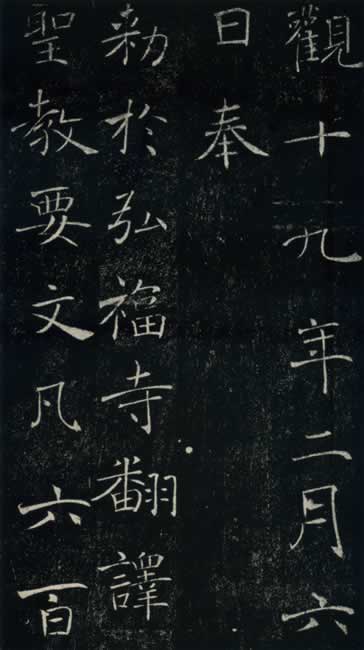 觀十九年二月六
日奉
勑於弘福寺翻譯
聖教要文凡六百